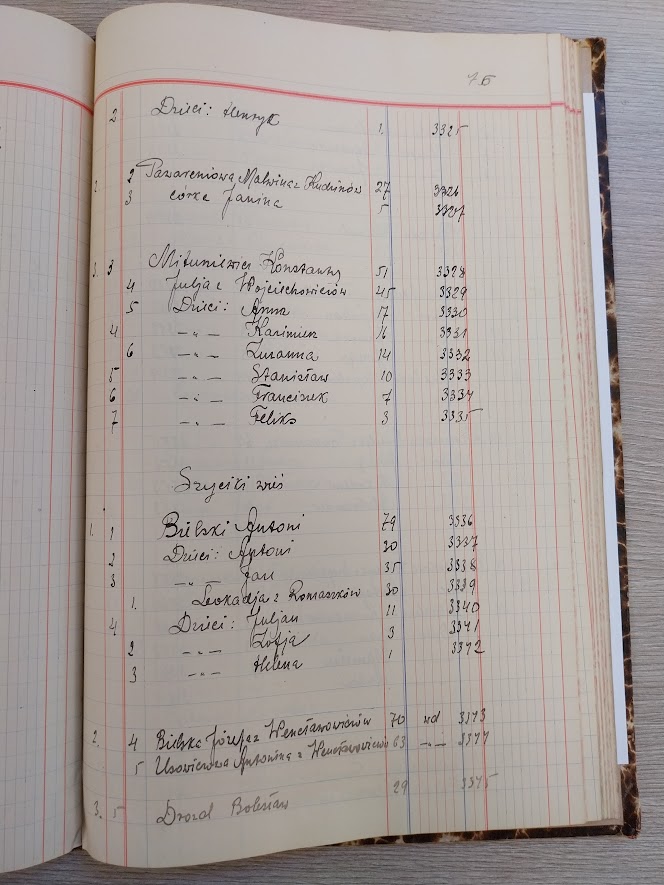 75
2 Dzieci: Henryk 1. 3325
1. 2 Pazareniowa Malwina z Kudzinów 27 3326
3 córka Janina 5 3327
2. 3 Mituniewicz Konstanty 51 3328
4 Julja z Wojciechowiczów 45 3329
5 Dzieci: Anna 17 3330
4 —„— Kazimierz 16 3331
6 —„— Zuzanna 14 3332
5 —„— Stanisław 10 3333
6 —„— Franciszek 7 3334
7 —„— Feliks 3 3335
Szyciki wieś
1. 1 Bielski Antoni 79 3336
2 Dzieci: Antoni 30 3337
3 —„— Jan 35 3338
1. Leokadja z Romaszków 30 3339
4 Dzieci: Juljan 11 3340
2 —„— Zofja 3 3341
3 —„— Helena 1 3342
2. 4 Bielska Józefa z Wencławowiczów 70 wd 3343
5 Usowiczowa Antonina z Wencławowiczów 63 —„— 3344
3. 5 Drozd Bolesław 29 3345